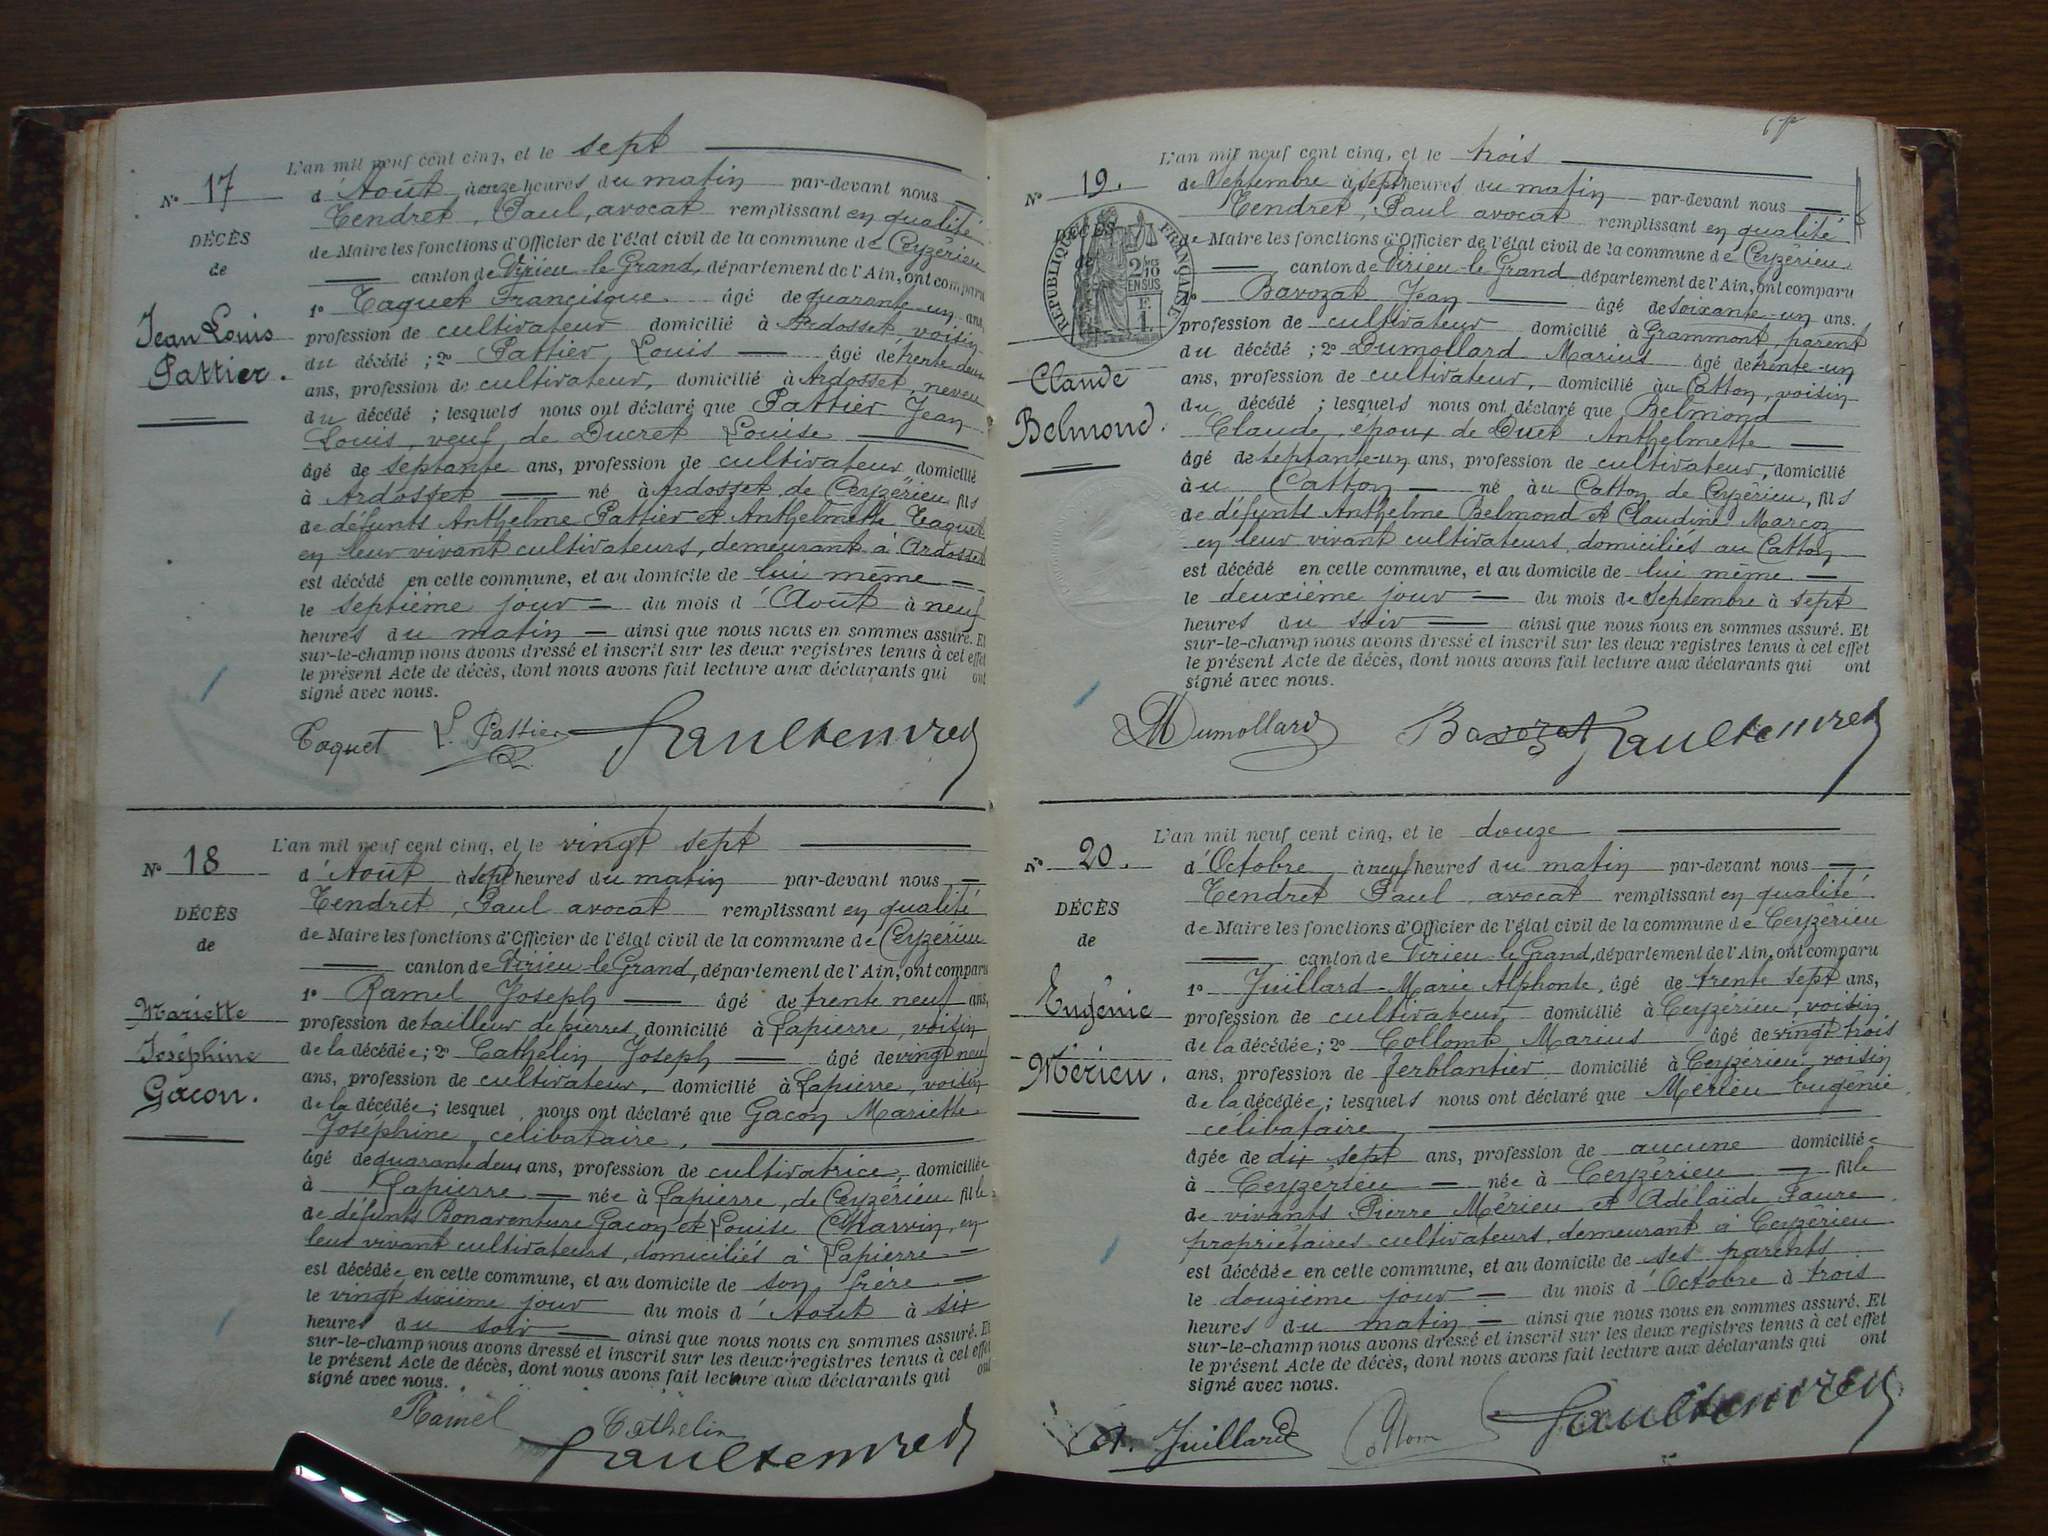 L'an mil neuf cent cinq, et le sept
N° 17
d'Août à onze heures du matin par-devant nous
Tendret, Paul, avocat remplissant en qualité
DÉCÈS
de Maire les fonctions d'Officier de l'état civil de la commune de Ceyzérieu
de
canton de Virieu-le-Grand, département de l'Ain, ont comparu
1° Taquet Françisque âgé de quarante-un ans,
Jean Louis
profession de cultivateur domicilié à Ardosset, voisin
Pattier.
du décédé ; 2° Pattier, Louis âgé de trente deux
ans, profession de cultivateur, domicilié à Ardosset, neveu
du décédé ; lesquels nous ont déclaré que Pattier Jean
Louis, veuf de Ducret Louise
âgé de septante ans, profession de cultivateur domicilié
à Ardosset né à Ardosset de Ceyzérieu fils
de défunts Anthelme Pattier et Anthelmette Taquet
en leur vivant cultivateurs, demeurant à Ardosset
est décédé en cette commune, et au domicile de lui même
le septième jour du mois d'Août à neuf
heures du matin ainsi que nous nous en sommes assuré. Et
sur-le-champ nous avons dressé et inscrit sur les deux registres tenus à cet effet
le présent Acte de décès, dont nous avons fait lecture aux déclarants qui ont
signé avec nous.
Taquet L. Pattier
L'an mil neuf cent cinq, et le vingt sept
N° 18
d'Août à sept heures du matin par-devant nous
Tendret, Paul avocat remplissant en qualité
DÉCÈS
de Maire les fonctions d'Officier de l'état civil de la commune de Ceyzérieu
de
canton de Virieu-le-Grand, département de l'Ain, ont comparu
1° Ramel Joseph âgé de trente neuf ans,
Mariette
profession de tailleur de pierres, domicilié à Lapierre, voisin
Joséphine
de la décédée ; 2° Cathelin Joseph âgé de vingt neuf
ans, profession de cultivateur, domicilié à Lapierre, voisin
Gacon.
de la décédée ; lesquel nous ont déclaré que Gacon Mariette
Joséphine, célibataire,
âgé de quarante deux ans, profession de cultivatrice, domiciliée
à Lapierre née à Lapierre, de Ceyzérieu fille
de défunts Bonaventure Gacon et Louise Charvin, en
leur vivant cultivateurs, domiciliés à Lapierre
est décédée en cette commune, et au domicile de son frère
le vingt sixième jour du mois d'Août à six
heures du soir ainsi que nous nous en sommes assuré. Et
sur-le-champ nous avons dressé et inscrit sur les deux registres tenus à cet effet
le présent Acte de décès, dont nous avons fait lecture aux déclarants qui ont
signé avec nous.
Ramel Cathelin
L'an mil neuf cent cinq, et le trois
N° 19.
de Septembre à sept heures du matin par-devant nous
Tendret, Paul avocat remplissant en qualité
DÉCÈS
de Maire les fonctions d'Officier de l'état civil de la commune de Ceyzérieu
de
canton de Virieu-le-Grand département de l'Ain, ont comparu
RÉPUBLIQUE FRANÇAISE
2/10 EN SUS
1° Bavozat Jean âgé de soixante-un ans.
profession de cultivateur domicilié à Grammont, parent
du décédé ; 2° Dumollard Marius âgé de trente-un
Claude
ans, profession de cultivateur, domicilié au Catton, voisin
Belmond.
du décédé ; lesquels nous ont déclaré que Belmond
Claude, époux de Duet Anthelmette
âgé de septante-un ans, profession de cultivateur, domicilié
à u Catton né au Catton de Ceyzérieu, fils
de défunts Anthelme Belmond et Claudine Marcoz
en leur vivant cultivateurs, domiciliés au Catton
est décédé en cette commune, et au domicile de lui même
le deuxième jour du mois de Septembre à sept
heures du soir ainsi que nous nous en sommes assuré. Et
sur-le-champ nous avons dressé et inscrit sur les deux registres tenus à cet effet
le présent Acte de décès, dont nous avons fait lecture aux déclarants qui ont
signé avec nous.
M Dumollard Bavozat
L'an mil neuf cent cinq, et le douze
N° 20.
d'Octobre à neuf heures du matin par-devant nous
Tendret Paul avocat remplissant en qualité
DÉCÈS
de Maire les fonctions d'Officier de l'état civil de la commune de Ceyzérieu
de
canton de Virieu-le-Grand, département de l'Ain, ont comparu
1° Juillard Marie Alphonse, âgé de trente sept ans,
Eugénie
profession de cultivateur, domicilié à Ceyzérieu, voisin
de la décédée ; 2° Collomb Marius âgé de vingt trois
Mérieu.
ans, profession de ferblantier domicilié à Ceyzérieu, voisin
de la décédée ; lesquels nous ont déclaré que Mérieu Eugénie
célibataire
âgée de dix sept ans, profession de aucune domiciliée
à Ceyzérieu née à Ceyzérieu fille
de vivants Pierre Mérieu et Adélaïde Faure
propriétaires cultivateurs, demeurant à Ceyzérieu
est décédée en cette commune, et au domicile de ses parents
le douzième jour du mois d'Octobre à trois
heures du matin ainsi que nous nous en sommes assuré. Et
sur-le-champ nous avons dressé et inscrit sur les deux registres tenus à cet effet
le présent Acte de décès, dont nous avons fait lecture aux déclarants qui ont
signé avec nous.
Juillard